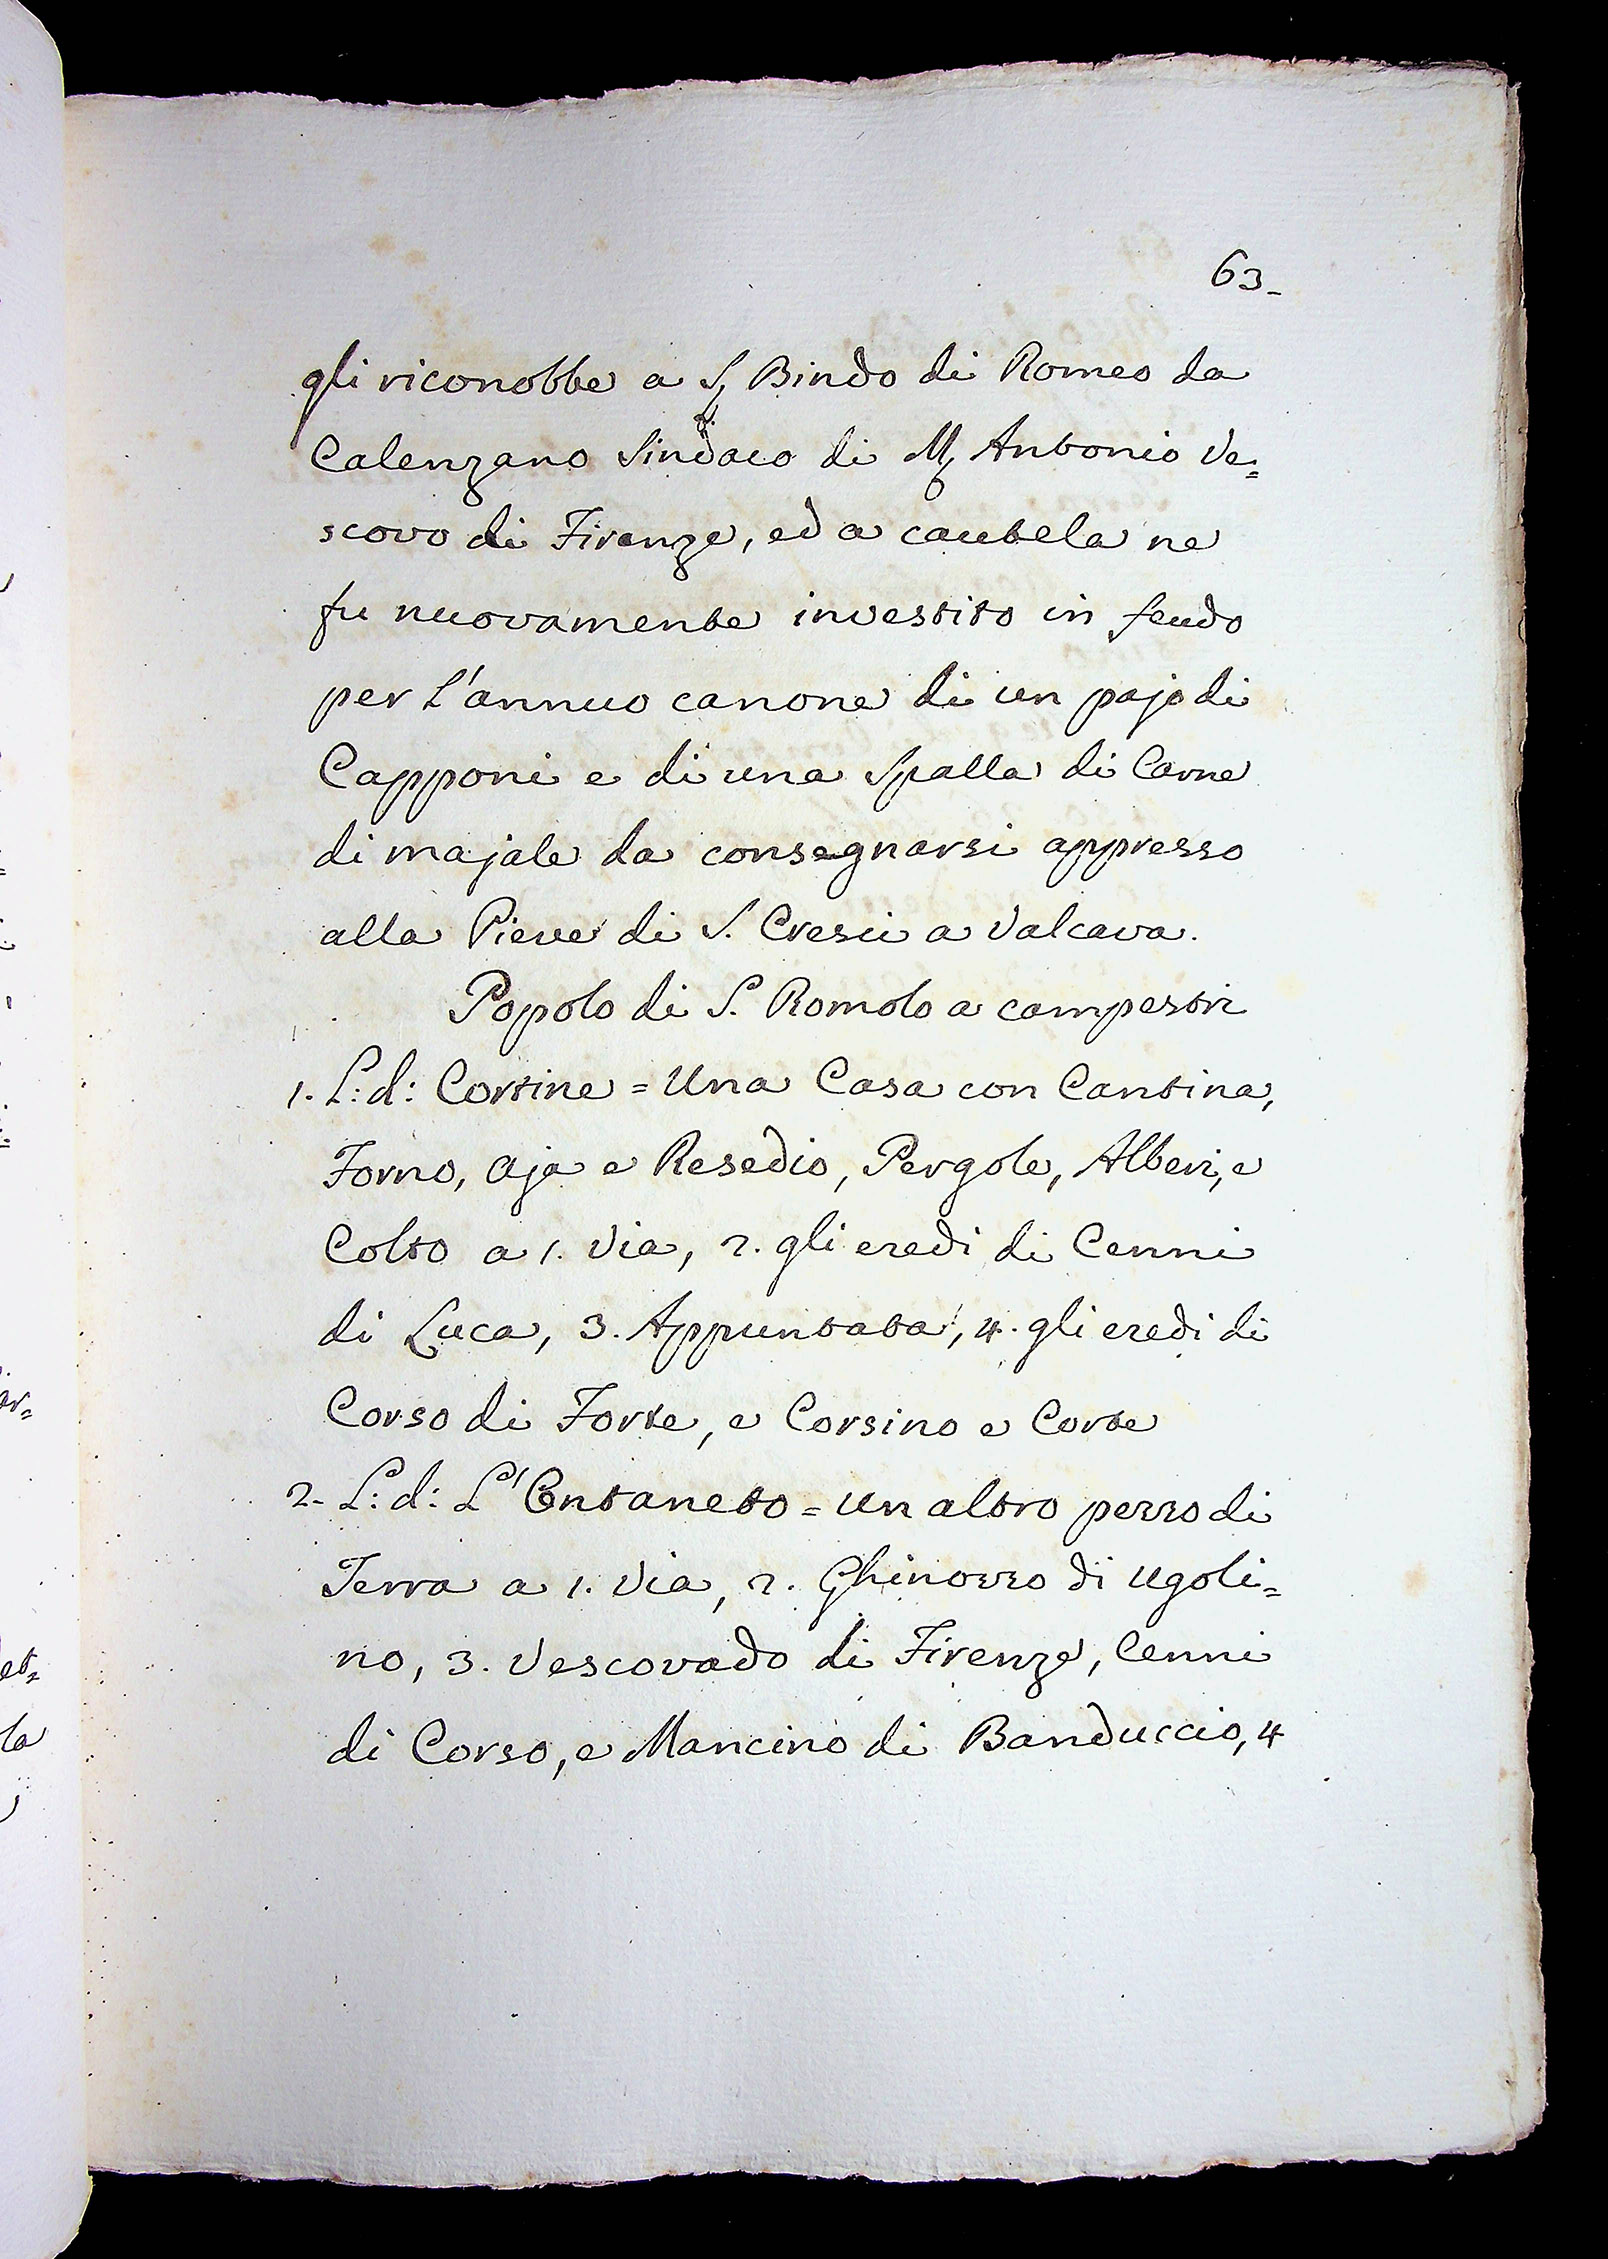 63-
gli riconobbe a S. Bindo di Romeo da
Calenzano Sindaco di M. Antonio Ve=
scovo di Firenze, ed a cautela ne
fu nuovamente investito in feudo
per l'annuo canone di un pajo di
Capponi e di una Spalla di Carne
di majale da consegnarsi appresso
alla Pieve di S. Cresci a Valcava.
Popolo di S. Romolo a campestri
1. L: d: Cortine = Una Casa con Cantina,
Forno, Aja e Resedio, Pergole, Alberi, e
Colto a 1. Via, 2. gli eredi di Cenni
di Luca, 3. Appuntata, 4. gli eredi di
Corso di Forte, e Corsino e Corte
2- L: d: L'Entaneto = un altro pezzo di
Terra a 1. Via, 2. Ghinozzo di Ugoli=
no, 3. Vescovado di Firenze, Cenni
di Corso, e Mancino di Banduccio, 4
er=
et=
la